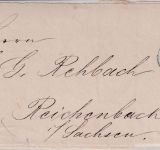 Herrn
G. Rehbach
Reichenbach
i/Sachsen.